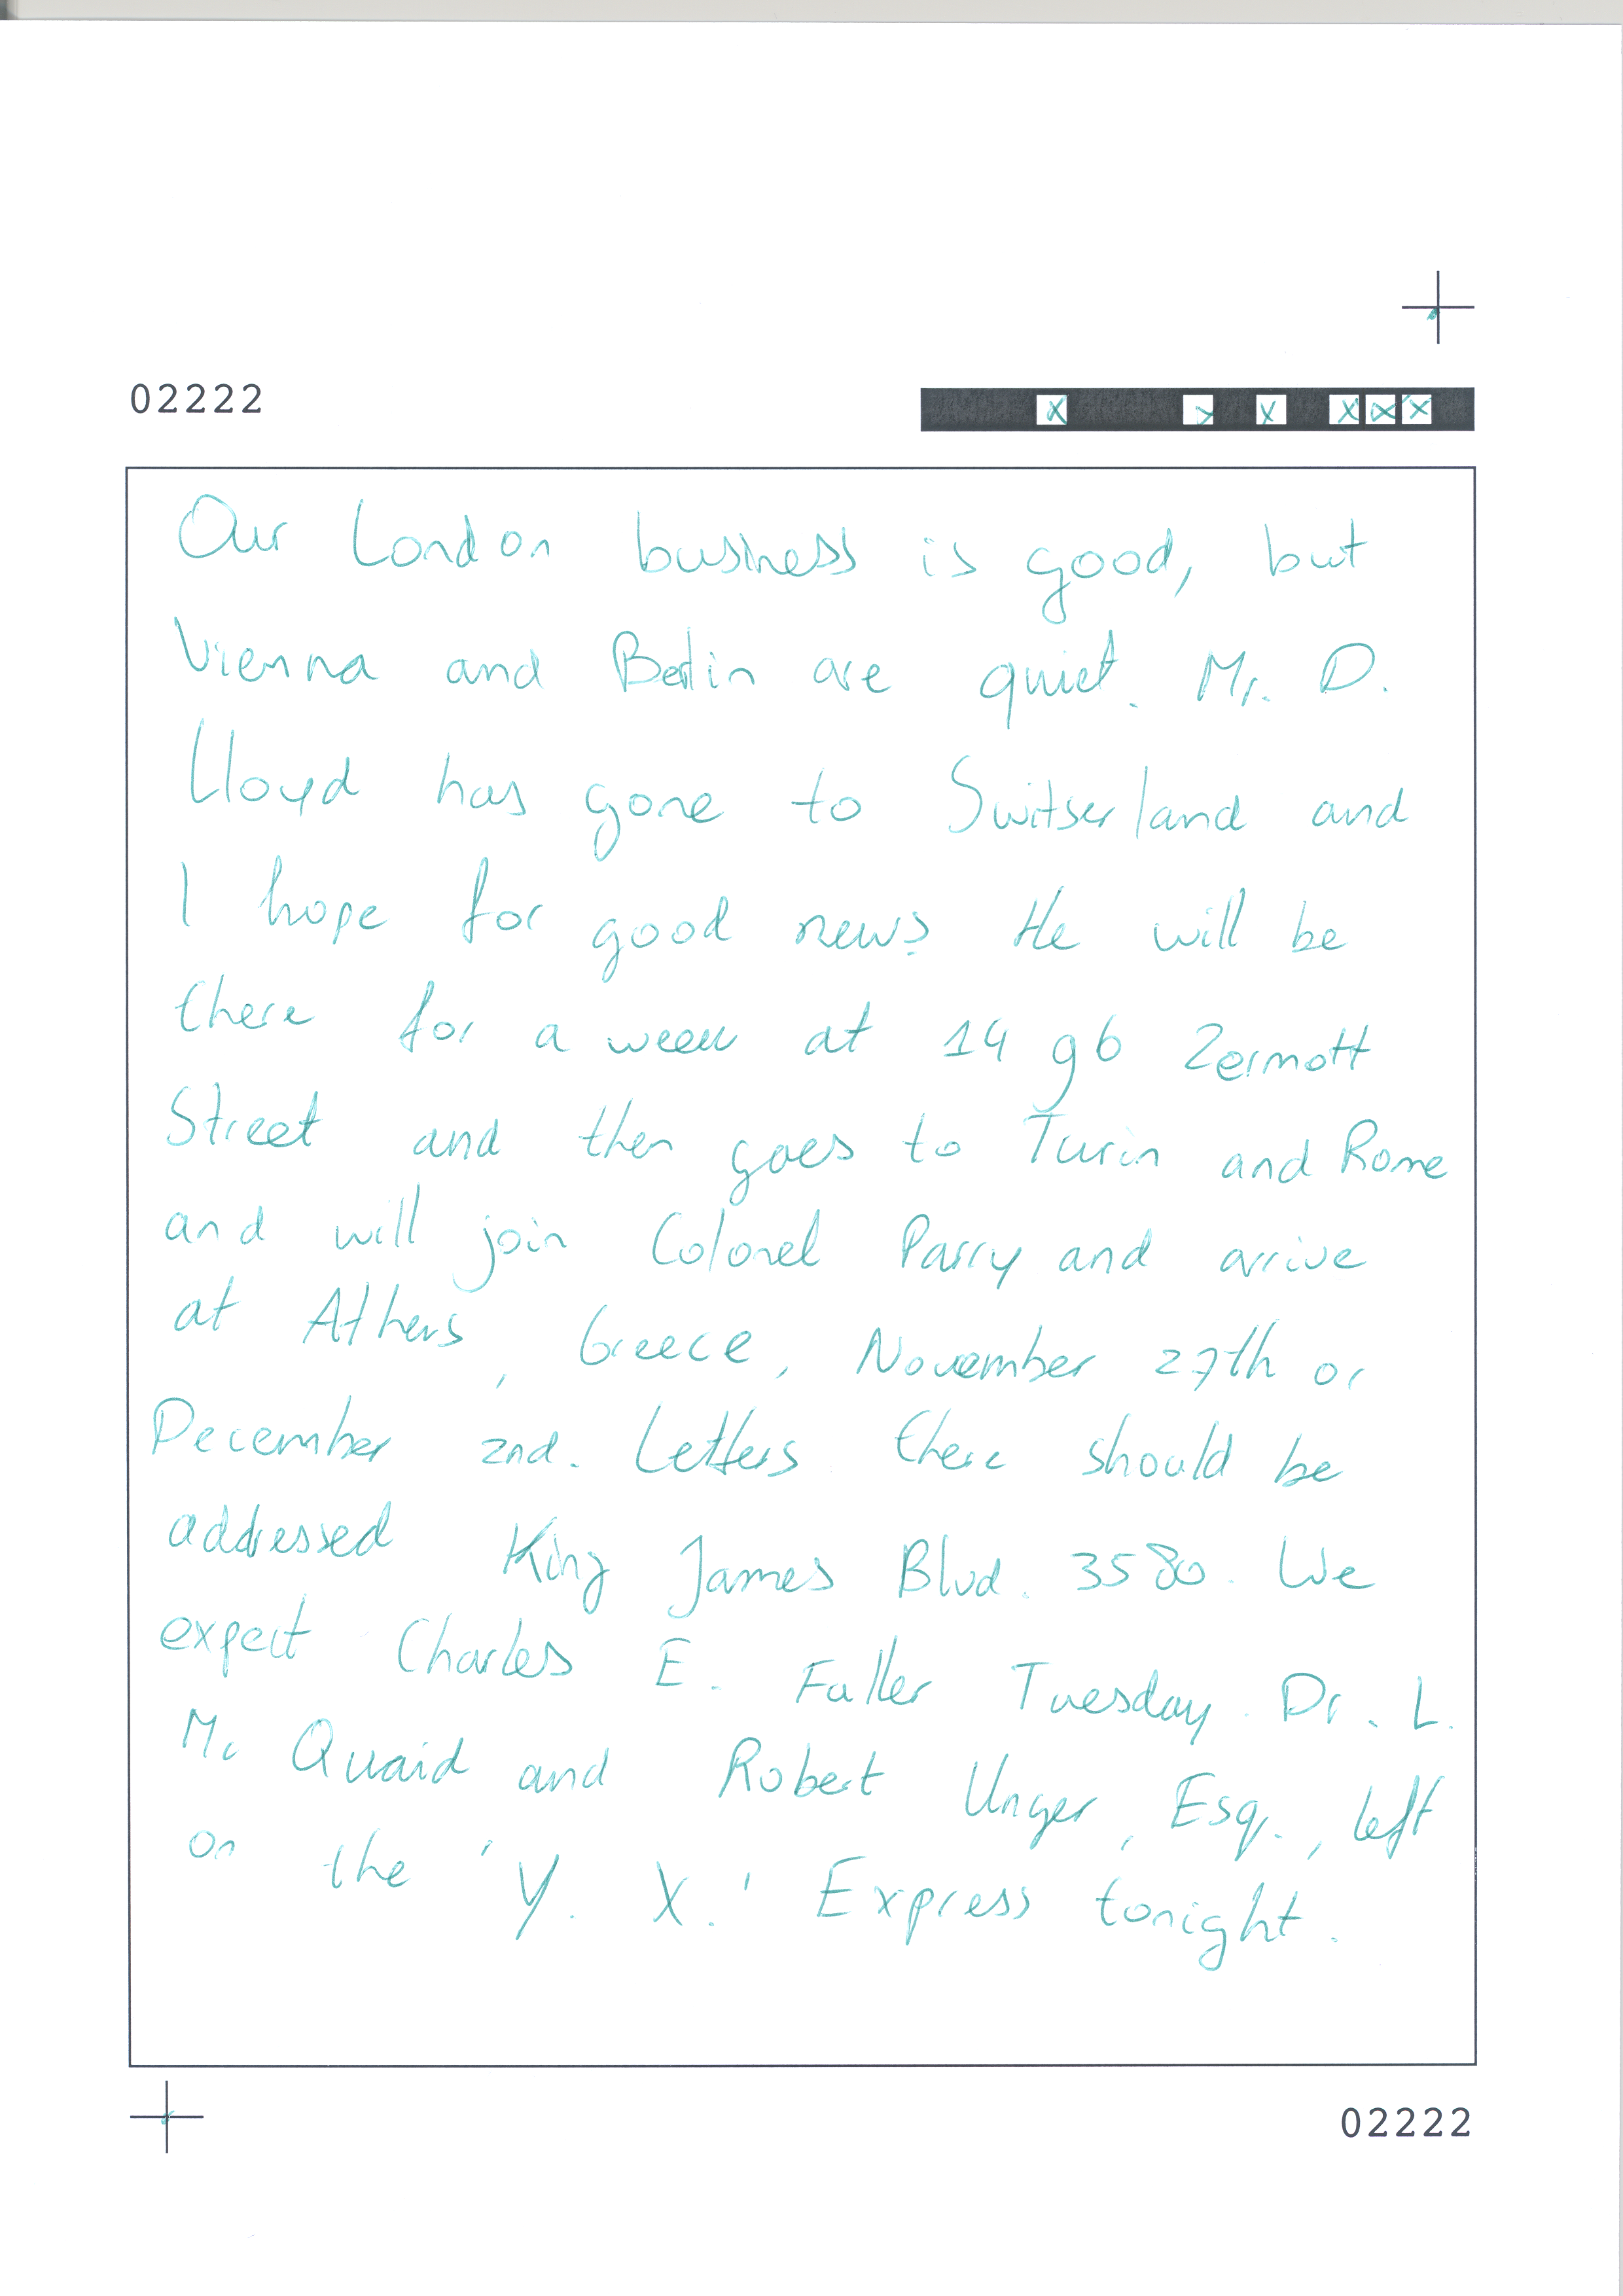 02222
Our London business is good, but
Vienna and Berlin are quiet. Mr. D.
Lloyd has gone to Switserland and
I hope for good news. He will be
there for a week at 14 96 Zermott
Street and then goes to Turin and Rome
and will join Colonel Parry and arrive
at Athens, Greece, November 27th or
December 2nd. Letters there should be
addressed King James Blvd. 3580. We
expect Charles E. Fuller Tuesday. Dr. L.
Mc Quaid and Robert Unger, Esq., left
on the 'Y. X.' Express tonight.
02222